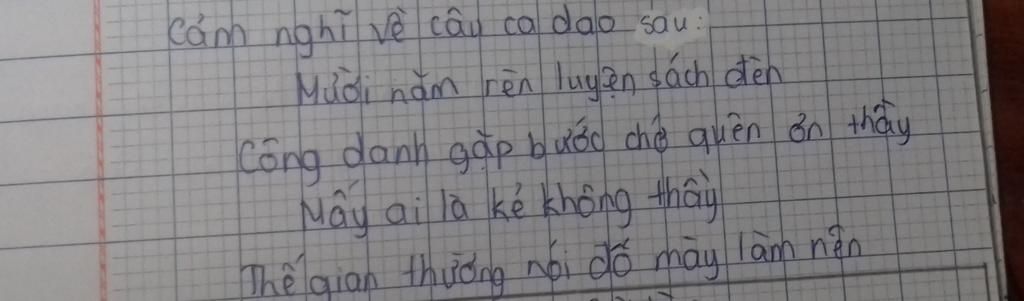 Cảm nghĩ về câu ca dao sau:
Mười năm rèn luyện sách đèn
Công danh gặp bước chớ quên ơn thầy
Mấy ai là kẻ không thầy
Thế gian thường nói đố mày làm nên